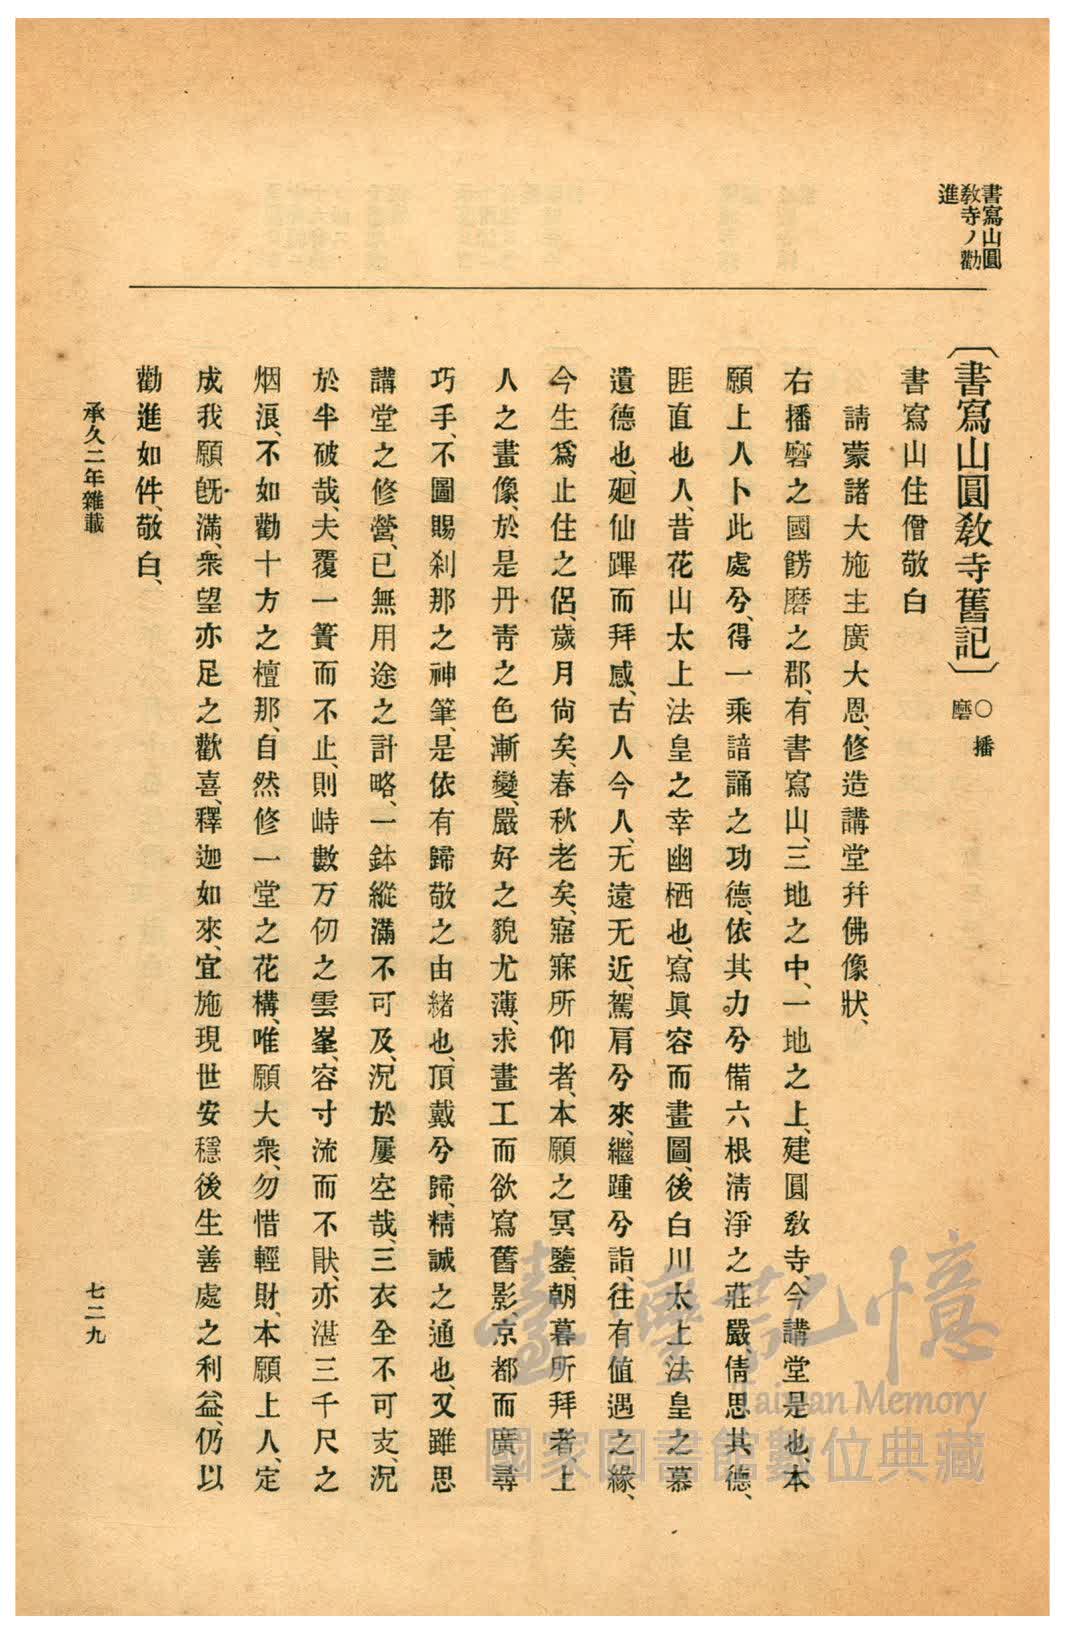 書寫山圓
敎寺ノ勸
進
〔書寫山圓敎寺舊記〕○播
磨
書寫山住僧敬白
請蒙諸大施主廣大恩、修造講堂幷佛像狀、
右播磨之國餝磨之郡、有書寫山、三地之中、一地之上、建圓敎寺、今講堂是也、本
願上人卜此處兮、得一乘諳誦之功德、依其力兮備六根淸淨之莊嚴、倩思其德、
匪直也人、昔花山太上法皇之幸幽栖也、寫眞容而畫圖、後白川太上法皇之慕
遺德也、廻仙蹕而拜感、古人今人、无遠无近、駕肩兮來、繼踵兮詣、往有値遇之緣、
今生爲止住之侶、歲月尙矣、春秋老矣、寤寐所仰者、本願之冥鑒、朝暮所拜者、上
人之畫像、於是丹靑之色漸變、嚴好之貌尤薄、求畫工而欲寫舊影、京都而廣尋
巧手、不圖賜刹那之神筆、是依有歸敬之由緖也、頂戴兮歸、精誠之通也、又雖思
講堂之修營、已無用途之計略、一鉢縱滿不可及、況於屢空哉、三衣全不可支、況
於半破哉、夫覆一簣而不止、則峙數万仞之雲峯、容寸流而不猒、亦湛三千尺之
烟浪、不如勸十方之檀那、自然修一堂之花構、唯願大衆、勿惜輕財、本願上人、定
成我願旣滿、衆望亦足之歡喜、釋迦如來、宜施現世安穩後生善處之利益、仍以
勸進如件、敬白、
承久二年雜載
七二九
臺灣記憶
Taiwan Memory
國家圖書館數位典藏